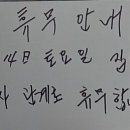 휴무 안내
14日 토요일 집
관계로 휴무합